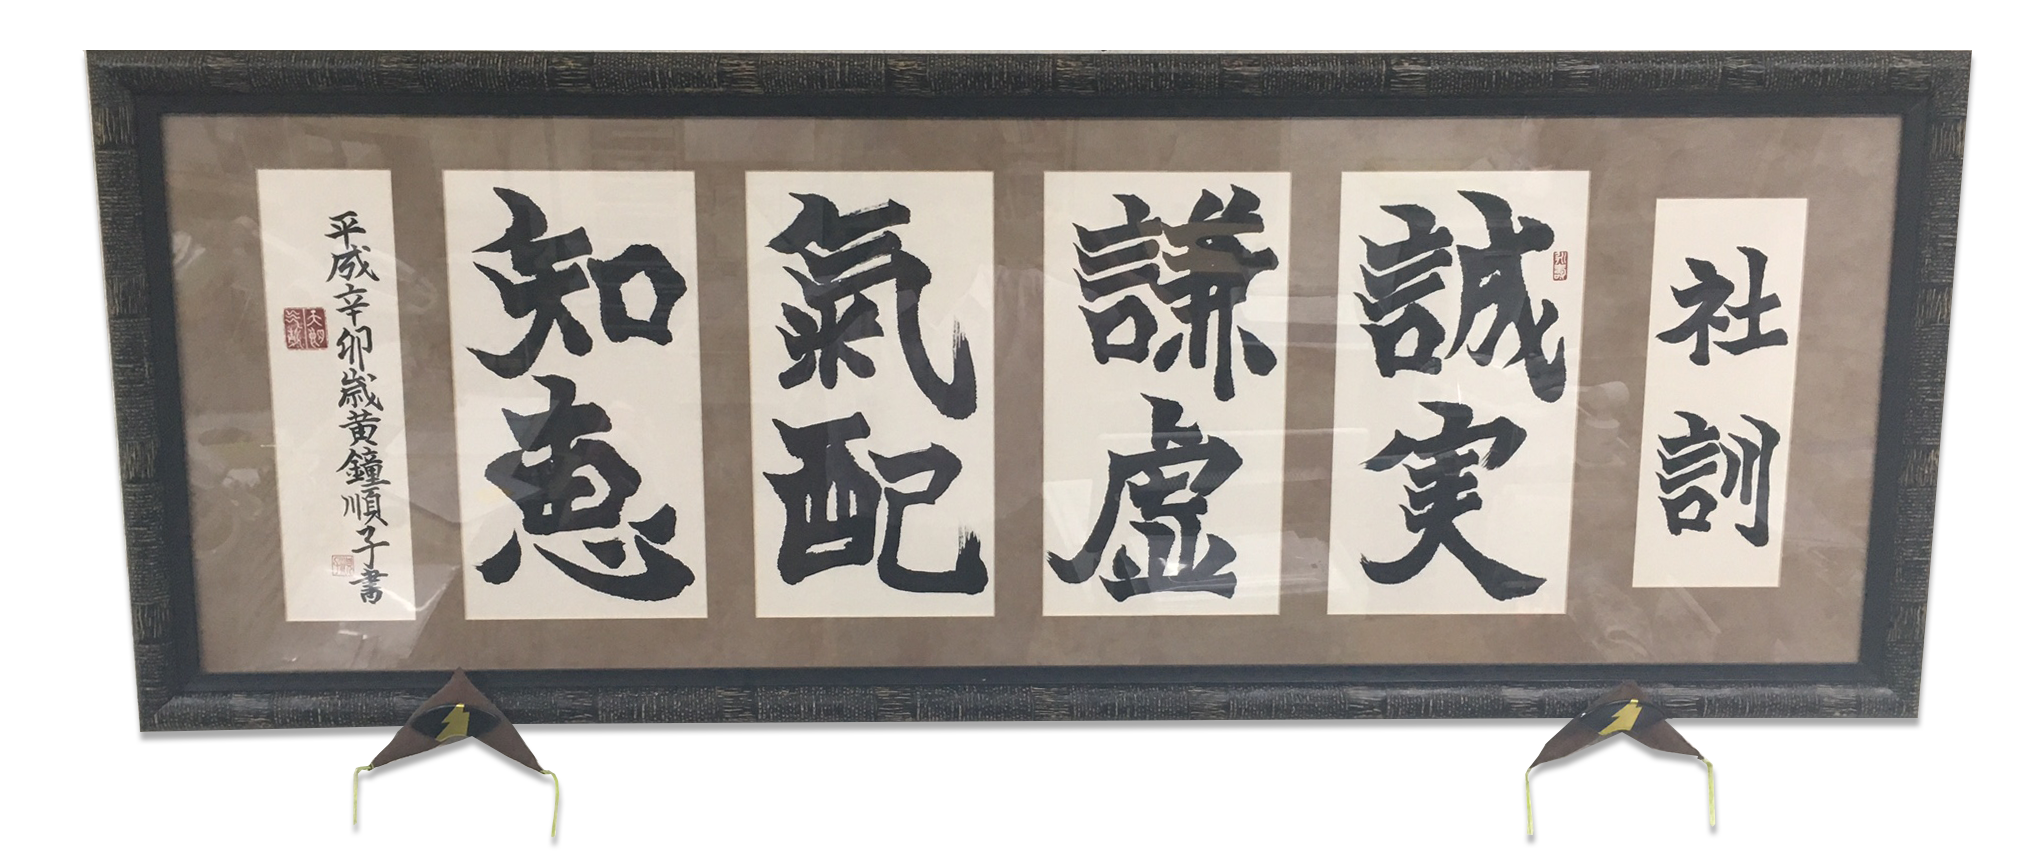 社訓
誠実
謙虚
氣配
知恵
平成辛卯歳黄鐘順子書